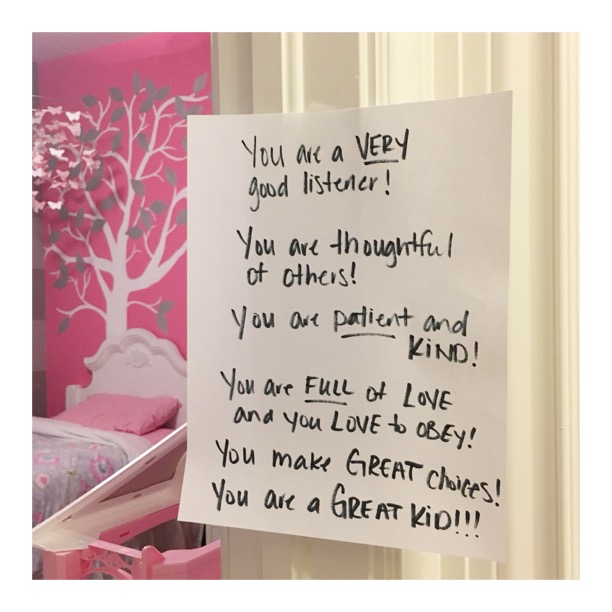 You are a VERY
good listener!
You are thoughtful
of others!
You are patient and
KIND!
You are FULL of LOVE
and you LOVE to OBEY!
You make GREAT choices!
You are a GREAT KID!!!